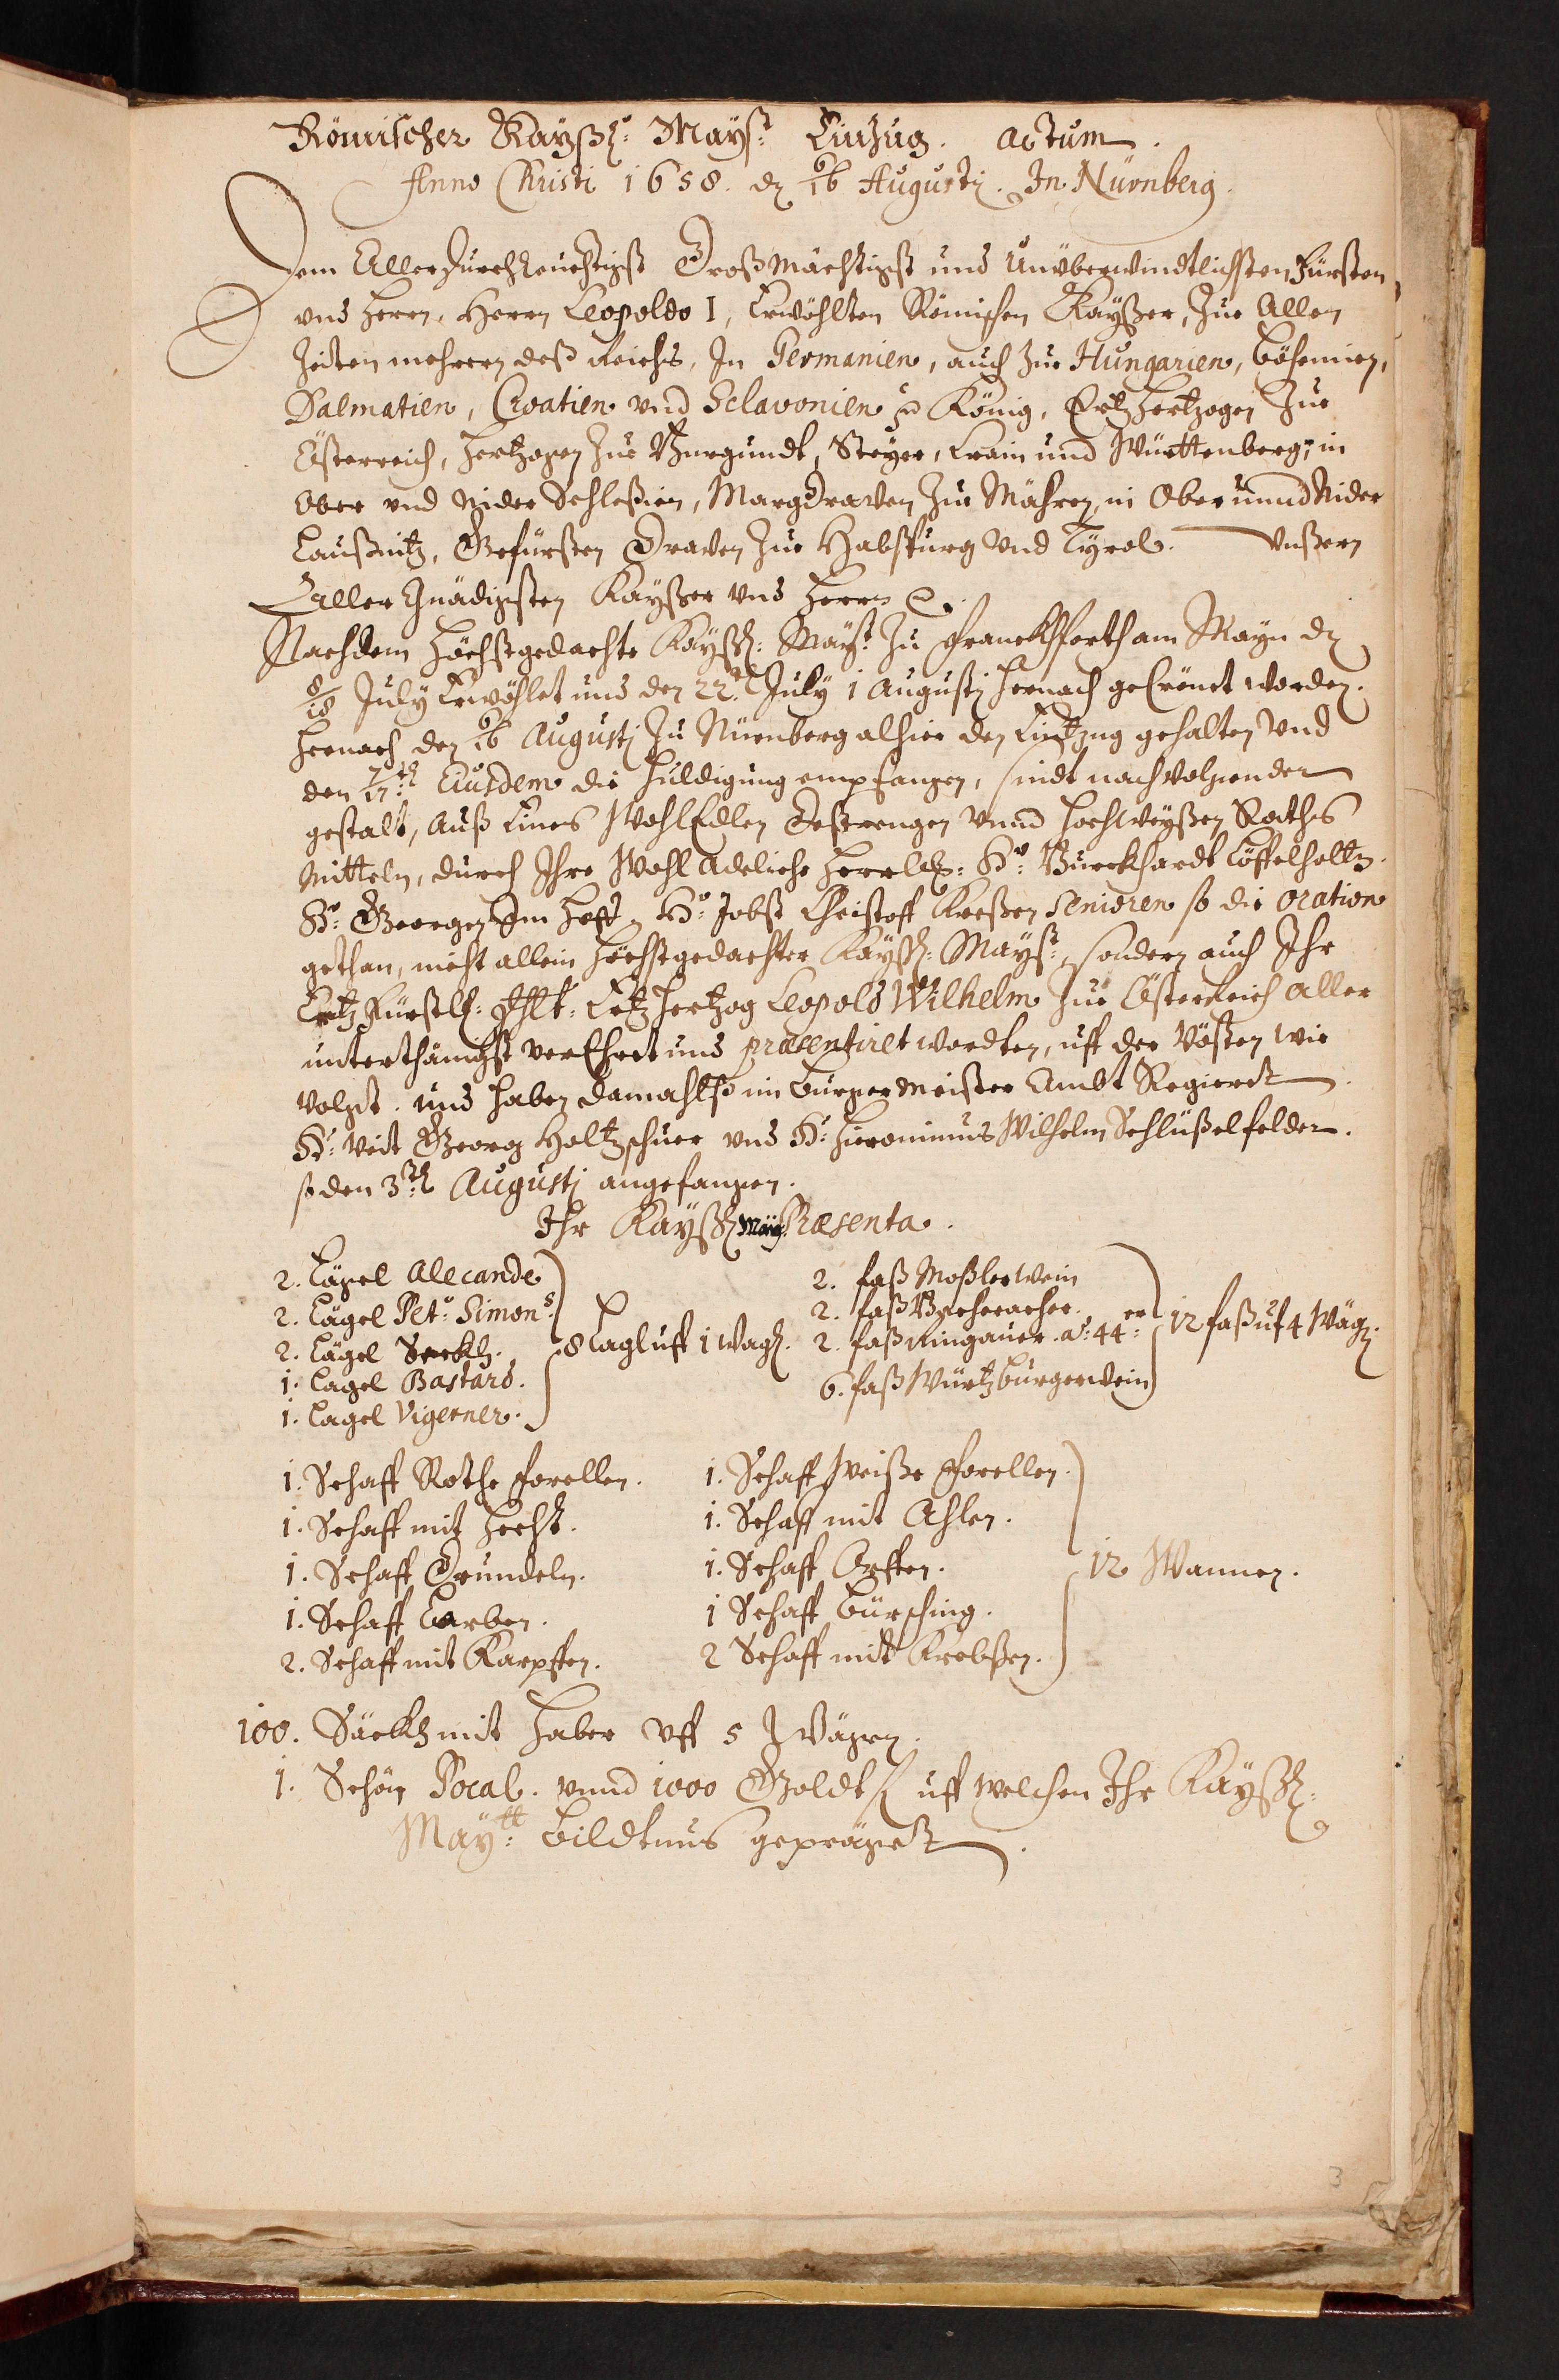 Römischer Kayßl: Mayst: Einzug. actum.
Anno Christi 1658. dz 6/16 Augusti. In Nürnberg.
Dem Allerdurchleuchtigst Großmächtigst und Unüberwindtlichsten Fürsten
und Herrn, Herrn Leopoldo I, Erwöhlten Römischen Kayßer, Zue Allen
Zeiten mehrern deß Reichs, In Germanien, auch Zue Hungarien, Böhemien,
Dalmatien, Croatien und Sclavonien König, Ertzhertzogen Zue
Österreich, Hertzogen Zue Burgundt, Steyer, Crain und Württenberg, in
Ober und Nider Schleßien, Marggraven Zue Mähren, in Ober unnd Nider
Laußnitz, Gefürsten Graven Zue Habspurg Und Tyrol. Unßern
Aller Gnädigsten Kayßer Und Herrn
Nachdem Höchstgedachte Kayßl: Mayst: Zu Franckhforth am Mayn dz
8/18 July Erwöhlet und den 22. July 1 Augustj hernach geCrönet worden.
Hernach den 6/16 Augustj Zu Nürnberg alhier den Eintzug gehalten Und
den 7/17 Eiusdem die Huldigung empfangen, sindt nachvolgender
gestalt, Auß Eines WohlEdlen Gestrengen Unnd Hochweyßen Rathes
Mitteln, durch Ihre Wohl Adeliche Herrl: Hr: Burckhardt Löffelholtz.
Hr: Georgen Im Hoff, Hr: Jobst Christoff Kreßen Senioren so die oration
gethan, nicht allein Höchstgedachter Kayßl: Mayst:, sondern auch Ihr
Ertz Fürstl: Dhlt: Ertz Hertzog Leopold Wilhelm Zue Österreich Aller
unterthänigst verEhret und præsentiret wordten, uff der Vösten wie
Volgt. und haben damahlß im Burgermeister Ambt Regieret
Hr: Veit Georg Holtzschuer und Hr: Hieronimus Wilhelm Schlüßelfelder.
so den 3. Augustj angefangen.
Ihr Kayßl May: Præsenta.
2. Lägel Alecande
2. Lägel Petr: Simons.
2. Lägel Seckh.
1. Lagel Bastard.
1. Lagel Vigerner.
8 Lagl uff 1 Wag.
2. faß Moßlerwein
2. faß Bacheracher.
2. faß Ringauer. a: 44er:
6. faß Würtzburgerwein
12 faß uf 4 Wäg.
1. Schaff Rothe Forellen. 1. Schaff Weiße Forellen.
1. Schaff mit Hecht. 1. Schaff mit Ahlen.
1. Schaff Grundeln. 1. Schaff Orffen. 12 Wannen.
1. Schaff Barben. 1 Schaff Bürsching.
2. Schaff mit Karpffen. 2 Schaff mit Krebßen.
100. Säckh mit Haber Uff 5 Wägen.
1. Schön Pocal. unnd 1000 Goldt fl uff welchen Ihr Kayßl:
Maytt: Bildtnus gepräget.
3